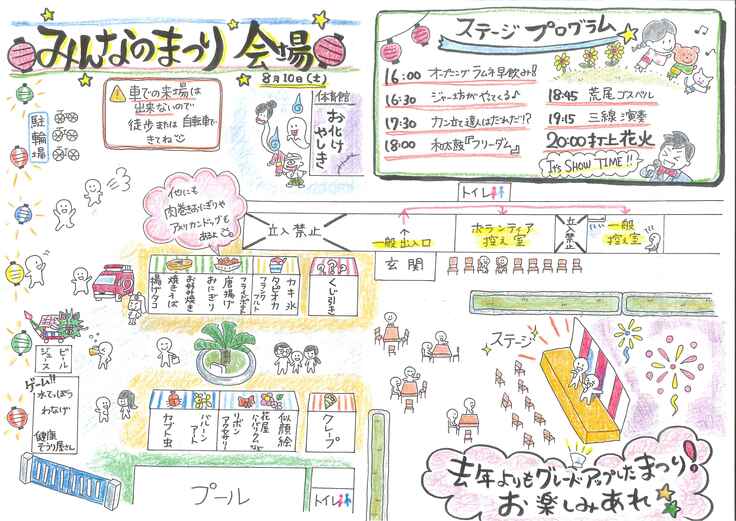 みんなのまつり 会場
8月10日(土)
⚠ 車での来場は
出来ないので
徒歩または自転車で
きてね
駐輪場
体育館
お化けやしき
ステージ プログラム
16:00 オープニング ラムネ早飲み!!
16:30 ジャー坊がやってくる♪
17:30 カン立て達人はだれだ!?
18:00 和太鼓『フリーダム』
18:45 荒尾ゴスペル
19:15 三線演奏
20:00 打上花火
It's SHOW TIME!!
トイレ
他にも
肉巻きおにぎりや
アメリカンドッグも
あるよ
立入禁止
一般出入口
ボランティア
控え室
立入禁止
一般
控え室
玄関
揚げタコ
焼きそば
お好み焼き
おにぎり
唐揚げ
フライドポテト
フランクフルト
タピオカ
カキ氷
くじ引き
ステージ
ビール
ジュース
ゲーム!!
水てっぽう
わなげ
健康
ぞうり屋さん
カブト虫
バルーンアート
リボン
アクセサリー
花屋
ハーバリウムなど
似顔絵
クレープ
プール
トイレ
去年よりもグレードアップしたまつり!
お楽しみあれ